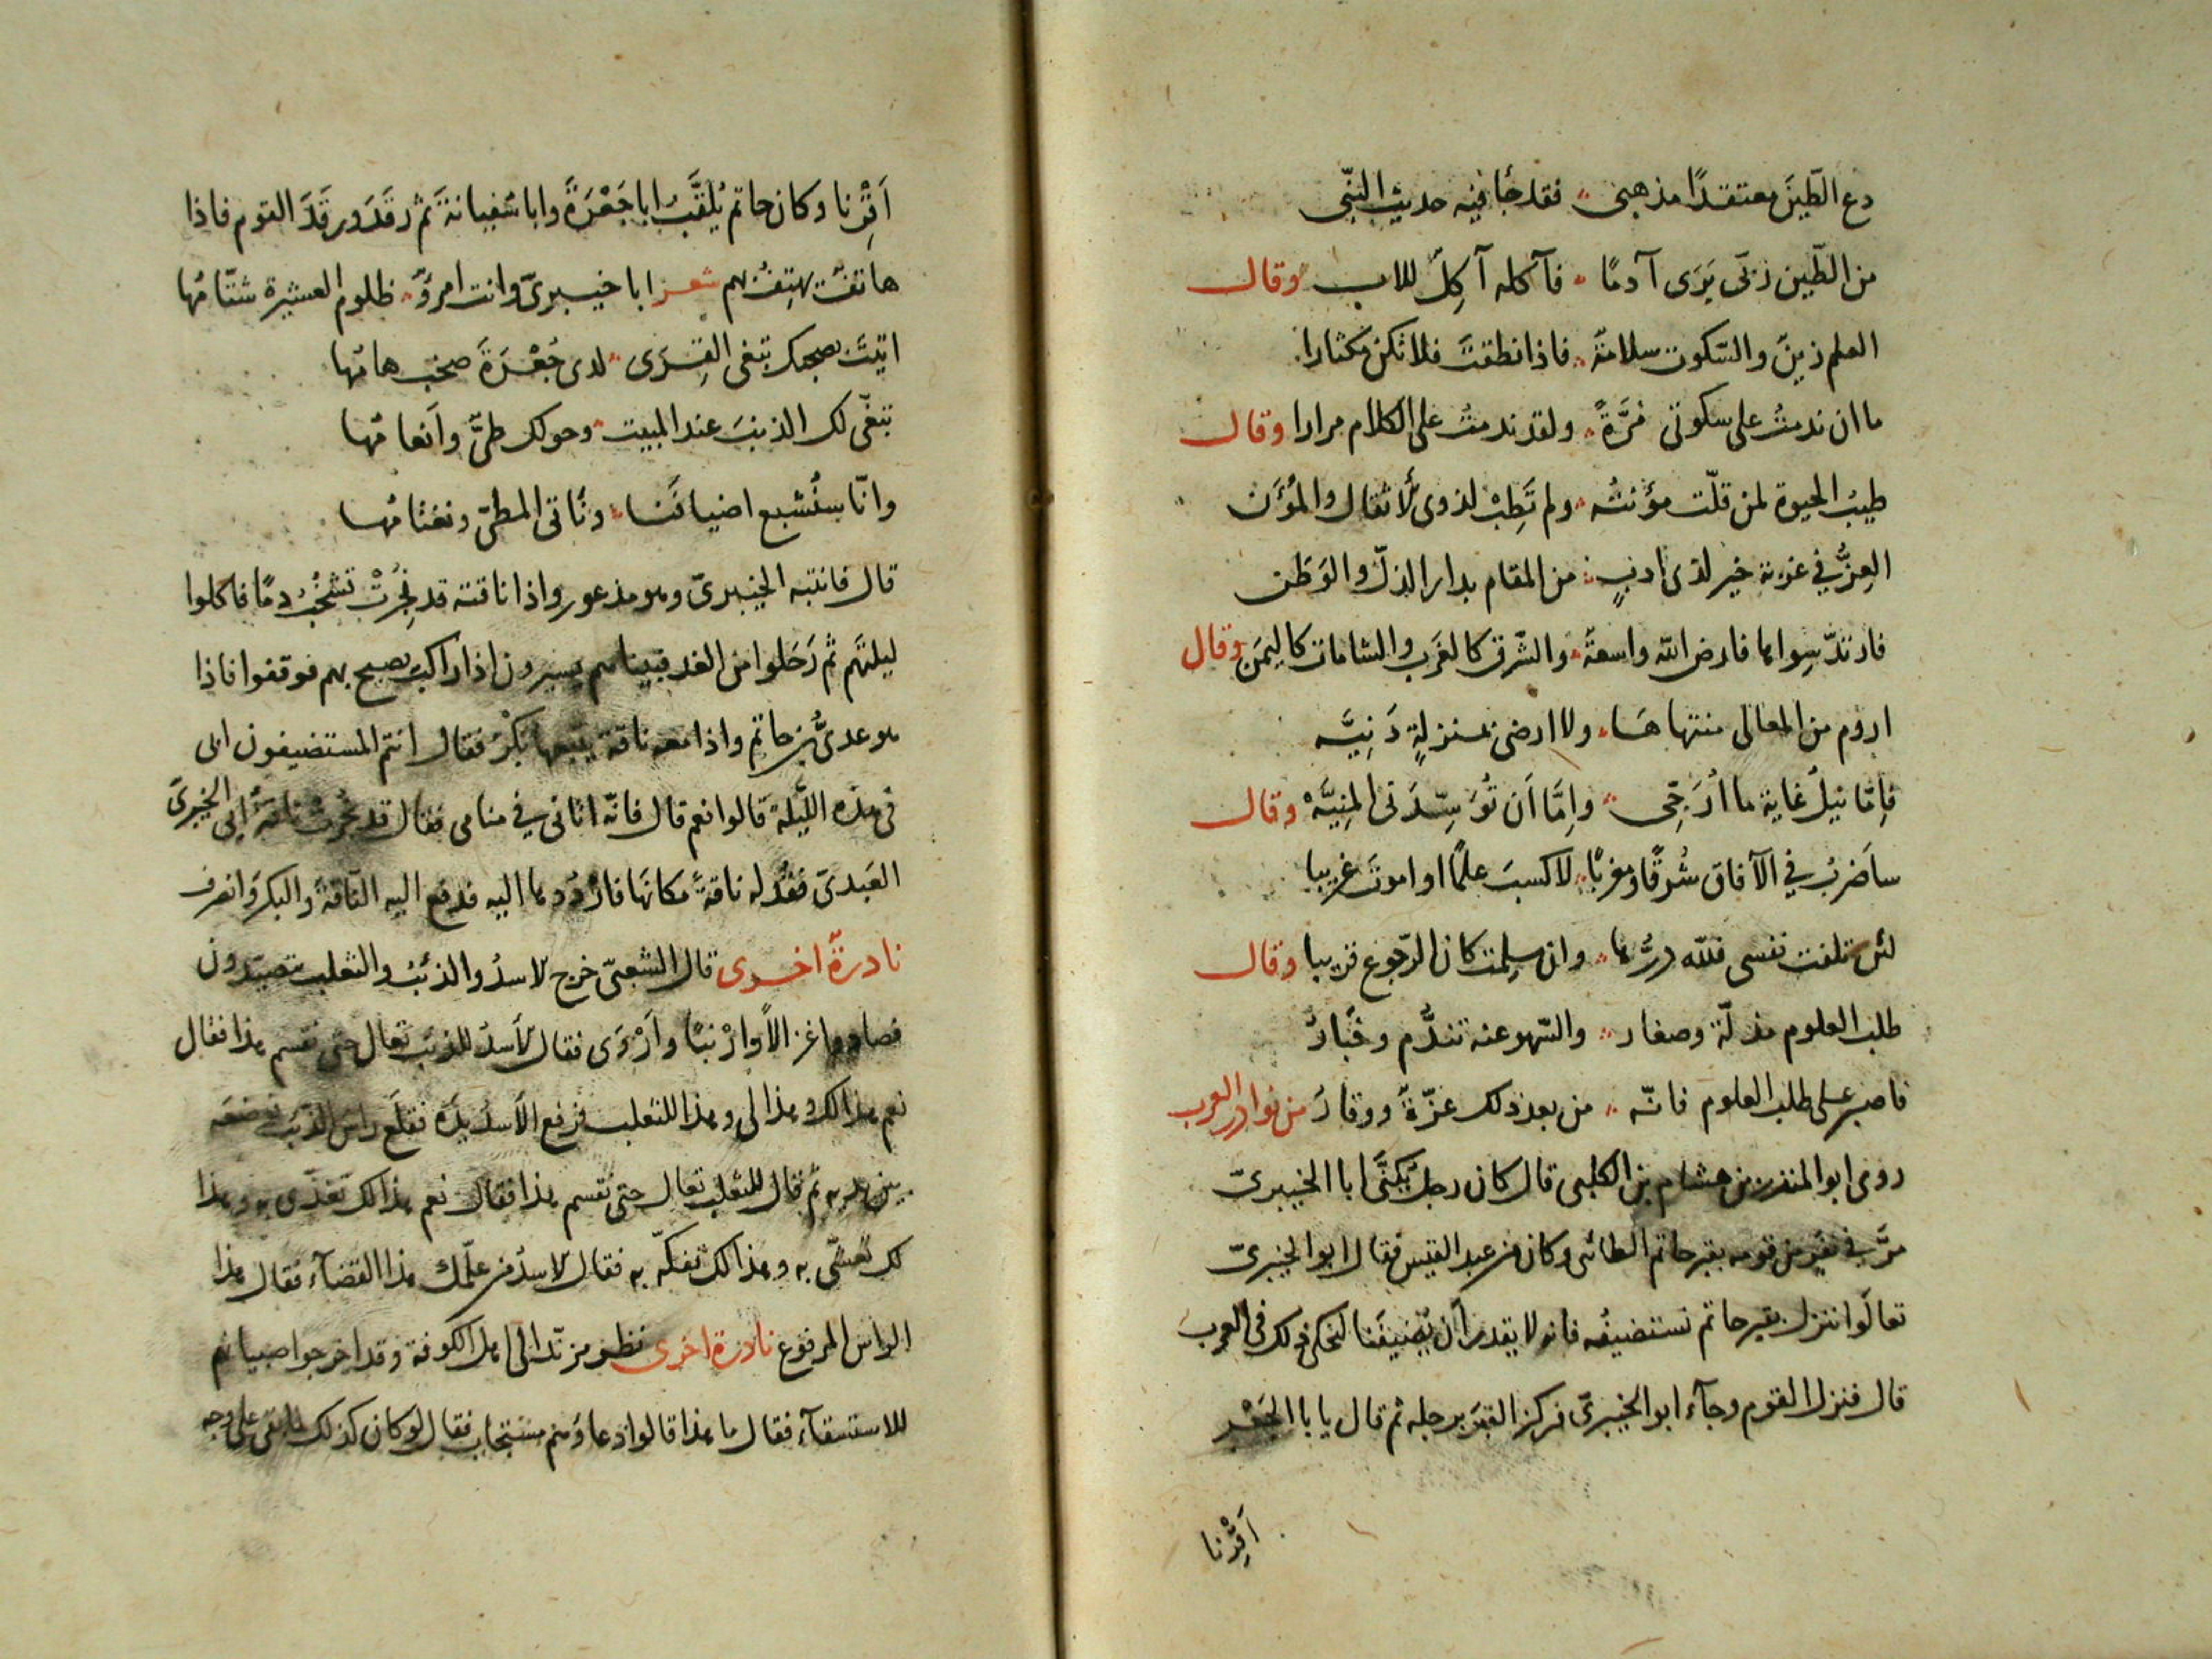 دع الطّين معتقدًا مذهبى ؞ فقد جا فيه حديث النّبى
من الطّين ربّى بَرَى آدمًا ؞ فآكله آكِلٌ للاب وقال
العلم زينٌ والسّكوت سلامةٌ ؞ فاذا نطقتَ فلا تكن مكثارا
ما ان ندمتُ على سكوتى مَرَّةً ؞ ولقد ندمتُ على الكلام مرارا وقال
طيبُ الحيوة لمن قلّت مؤنتُه ؞ ولم تَطِبْ لذوى الأثقال والمُؤَن
العِزُّ في غربة خير لذى ادبٍ ؞ من المقام بدار الذلّ والوَطَن
فارتدّ سِواها فارض الله واسعةٌ ؞ والشّرق كالغَرب والشامات كاليمَن وقال
اروم من المعالى منتهاهَا ؞ ولا ارضى بمنزلةٍ دَنِيَّه
فاِمّا نيلُ غاية ما اُرَجّى ؞ واِمَّا اَن تُوَسِّدَنى المنِيَّهْ وقال
ساَضربُ في الآفاق شرقًا ومغربًا ؞ لاكسبَ علمًا او اموتَ غريبا
لئن تلفت نفسى فللّه درُّها ؞ وان سلِمت كان الرّجوع قريبا وقال
طلب العلوم مذلّة وصغار ؞ والسّهو عنه تندُّم وخَبارُ
فاصبر على طلب العلوم فانّه ؞ من بعد ذلك عزّةٌ ووقارُ من نوادر العرب
روى ابو المنذر بن هشام بن الكلبى قال كان رجل يُكنَّى ابا الخيبرىّ
مرَّ في نفر من قومه بقبر حاتم الطائى وكان من عبد القيس فقال ابو الخيبرىّ
تعالَوا ننزل بقبر حاتم نستضيفُه فانه لا يقدر اَن يُضيفَنا لنحكى ذلك فى العرب
قال فنزل القوم وجآء ابو الخيبرىّ فركز القبَر برجله ثم قال يا با الجَعْر
اَقْرِنا
اَقْرِنا وكان حاتم يُلقَّبُ ابا جَعْرَةً وابا سَفيانةَ ثم رقَدَ ورقَدَ القوم فاذا
هاتفٌ يهتِفُ بهم شعر ابا خيبرىّ وانت امرؤٌ ؞ ظلوم العشيرة شتّامُها
اتيتَ بصحبك تبغى القِرَى ؞ لدى جُعْرَةَ صخب هامُها
تبغّى لك الذنبَ عند المبيت ؞ وحولك طىٌّ واَنعامُها
وانّا سنُشبع اضيافَنا ؞ ونأتى المطىّ ونغتامُها
قال فانتبه الخيبرىّ وهو مذعور واذا ناقته قد نُحِرَتْ تشخُبُ دمًا فاكلوا
ليلتَهم ثم رَحَلوا من الغد فبيناهم يسيرون اذا راكب يصيح بهم فوقفوا فاذا
هو عدىُّ بن حاتم واذا معه ناقة يتبعها بَكْرٌ فقال انتم المستضيفون ابى
فى هذه اللّيلة قالوا نعم قال فانّه اتانى في منامى فقال قد نُحرتْ ناقةُ ابى الخيبرىّ
العَبدىّ فقُد له ناقةً مكانَها فارْدُدها اليه فدفع اليه النّاقةَ والبكرَ وانصرف
نادرةٌ اخرى قال الشعبىّ خرج الاسدُ والذئبُ والثعلب يتصيّدون
فصادوا غزالاً وارْنبًا واَرْوَى فقال الأسدُ للذئب تعال حتى نقسم هذا فقال
نعم هذا لك وهذا لى وهذا للثعلب فرفع الأسدُ يدَه فقلَع راسَ الذئب فوضعَه
بين يديه ثم قال للثعلب تعال حتى نقسم هذا فقال نعم هذا لك تغدّى به وهذا
لك تعشّى به وهذا لك تفكّه به فقال الاسدُ من علّمك هذا القضآء فقال هذا
الراس المرفوع نادرة اخرى نظر مزبّد الى اهل الكوفة وقد اخرجوا صبيانهم
للاستسقآء فقال ما هذا قالوا دعاؤهم مستجاب فقال لو كان كذلك ما بقى على وجه